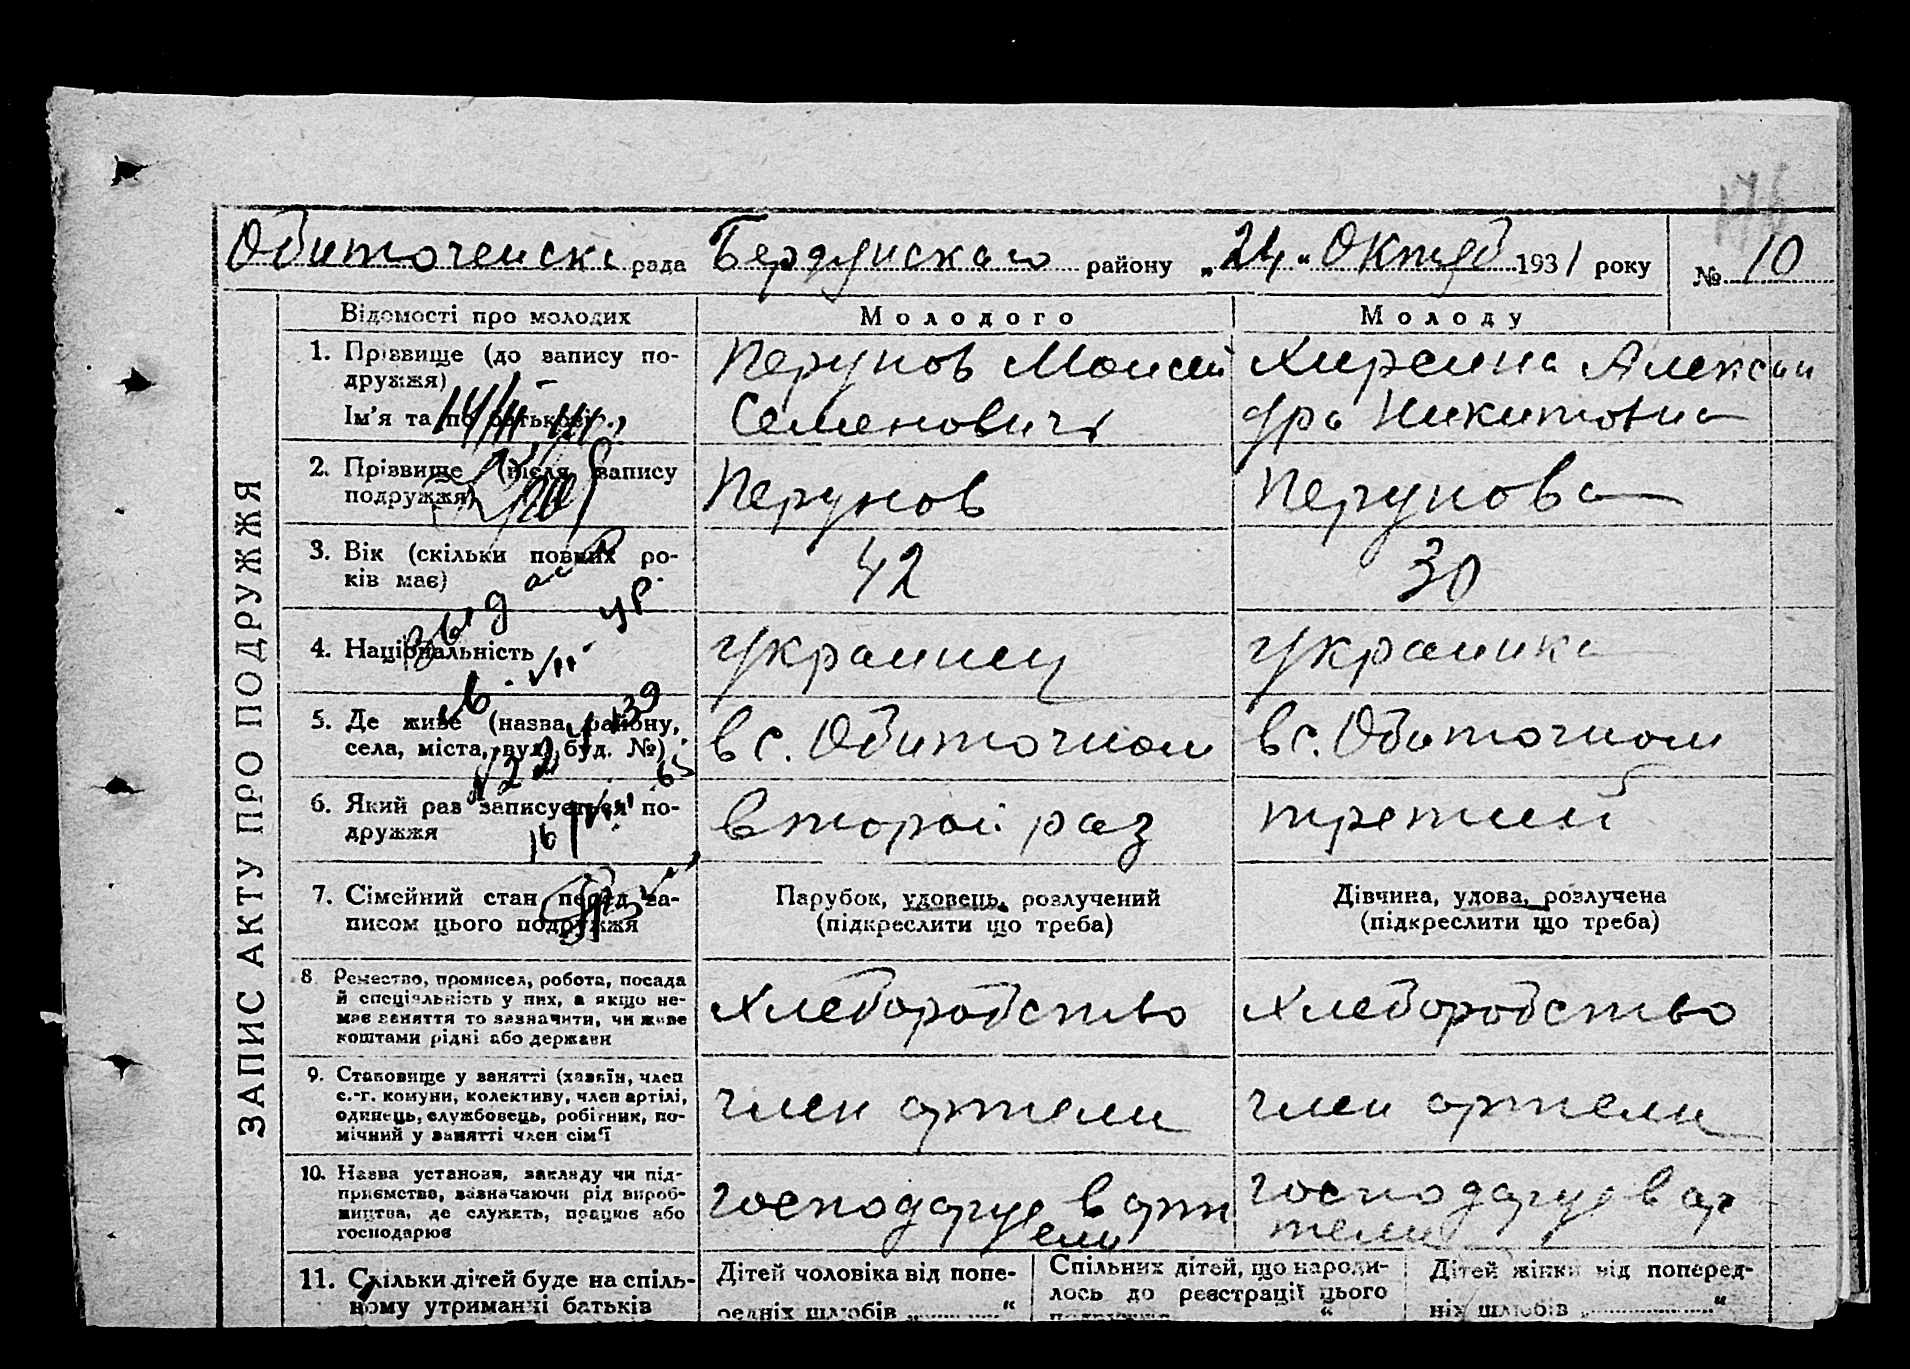 176
Обиточенска рада Бердянскаго району „24“ Октяб 1931 року № 10
ЗАПИС АКТУ ПРО ПОДРУЖЖЯ
Відомості про молодих
Молодого
Молоду
1. Прізвище (до запису по-
дружжя)
Ім'я та по батькові
Перунов Моисей
Семенович
Алексан
дра Никитовна
2. Прізвище (після запису
подружжя)
Перунов
Перунова
3. Вік (скільки повних ро-
ків має)
42
30
4. Національність
украинец
украинка
5. Де живе (назва району,
села, міста, вул., буд. №)
в с. Обиточном
в с. Обиточном
6. Який раз записується по-
дружжя
второй раз
третий
7. Сімейний стан перед за-
писом цього подружжя
Парубок, удовець, розлучений
(підкреслити що треба)
Дівчина, удова, розлучена
(підкреслити що треба)
8 Ремество, промисел, робота, посада
й спеціяльність у них, а якщо не-
має заняття то зазначити, чи живе
коштами рідні або держави
хлеборобство
хлеборобство
9. Становище у занятті (хазяїн, член
с.-г. комуни, колективу, член артілі,
одинець, службовець, робітник, по-
мічний у занятті член сім'ї
член артели
член артели
10. Назва установи, закладу чи під-
приємства, зазначаючи рід вироб-
ництва, де служить, працює або
господарює
господарує в арт
ели
господарує в ар
тели
11. Скільки дітей буде на спіль-
ному утриманні батьків
Дітей чоловіка від попе-
редніх шлюбів „ “
Спільних дітей, що народи-
лось до реєстрації цього
подружжя “
Дітей жінки від поперед-
ніх шлюбів „ “